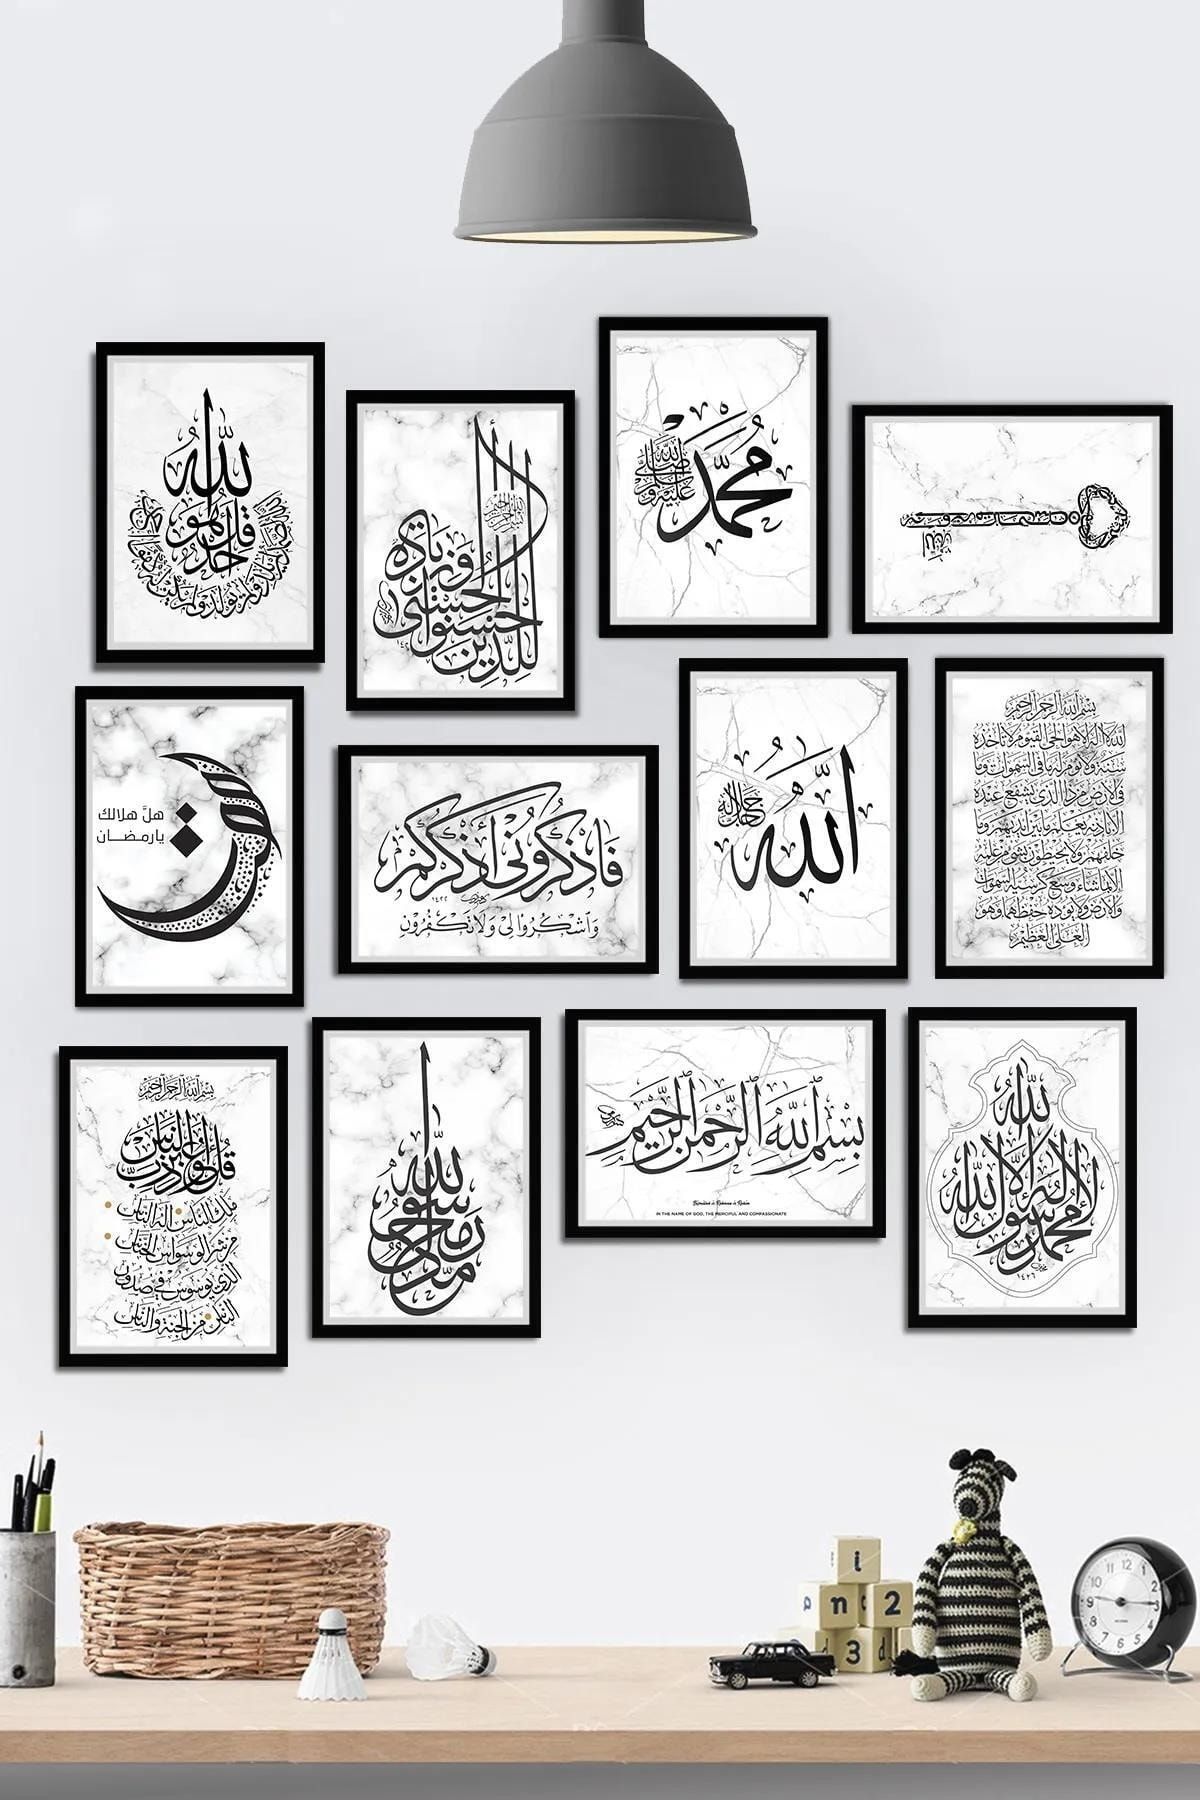 قُلْ هُوَ اللَّهُ أَحَدٌ
بسم الله الرحمن الرحيم
لِلَّذِينَ أَحْسَنُوا الْحُسْنَى وَزِيَادَة
مُحَمَّد
صلى الله عليه وسلم
هلَّ هلالك
يا رمضان
فَاذْكُرُونِي أَذْكُرْكُمْ
١٤٢٢
وَاشْكُرُوا لِي وَلَا تَكْفُرُونِ
اللَّه
جل جلاله
بسم الله الرحمن الرحيم
الله لا إله إلا هو الحي القيوم لا تأخذه
سنة ولا نوم له ما في السموات وما
في الأرض من ذا الذي يشفع عنده
إلا بإذنه يعلم ما بين أيديهم وما
خلفهم ولا يحيطون بشيء من علمه
إلا بما شاء وسع كرسيه السموات
والأرض ولا يؤده حفظهما وهو
العلي العظيم
بسم الله الرحمن الرحيم
قل أعوذ برب الناس
ملك الناس إله الناس
من شر الوسواس الخناس
الذي يوسوس في صدور
الناس من الجنة والناس
محمد رسول الله
بِسْمِ اللَّهِ الرَّحْمَنِ الرَّحِيمِ
IN THE NAME OF GOD, THE MERCIFUL AND COMPASSIONATE
لا إله إلا الله
محمد رسول الله
١٤٢٦
i
n 2
3
12 1 2 3 4 5 6 7 8 9 10 11